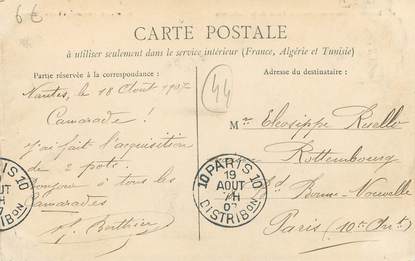 6€
CARTE POSTALE
à utiliser seulement dans le service intérieur (France, Algérie et Tunisie)
Partie réservée à la correspondance :
Adresse du destinataire :
Nantes, le 18 Août 1907
44
Camarade !
J'ai fait l'acquisition
de 2 pots.
Bonjour à tous les
Camarades
Berthier
Mr
Rottembourg
Bd Bonne-Nouvelle
Paris (10e Arrt)
PARIS 10
AOUT
DISTRIBON
10 PARIS 10
19
AOUT
7H
07
DISTRIBON